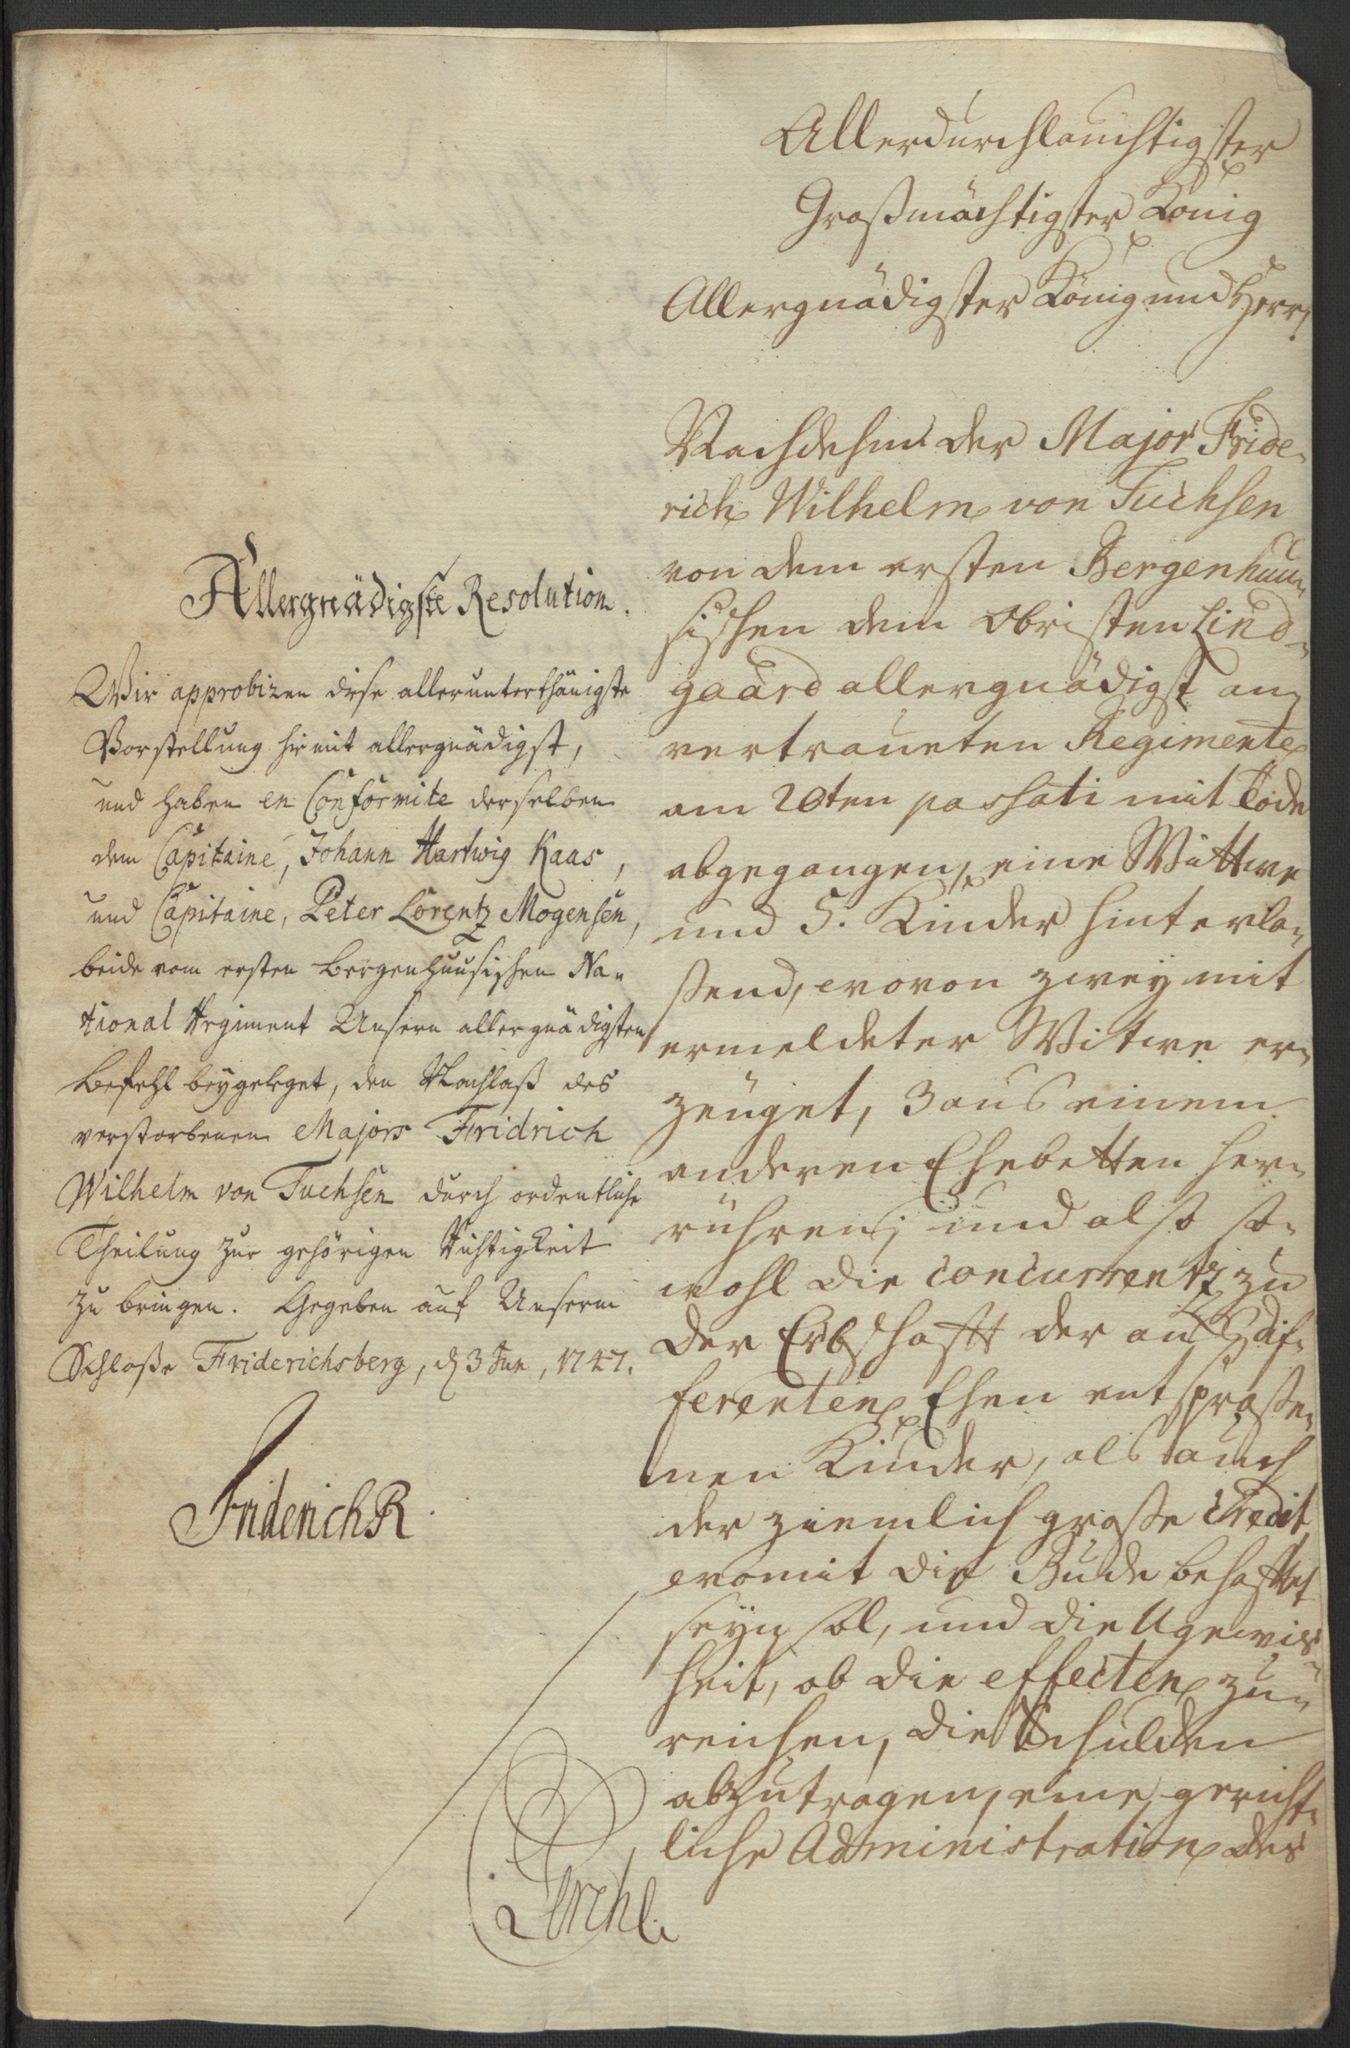 Allerdurchlauchtigster
Großmächtigster König
Allergnädigster König und Herr,
Nachdehm der Major Fride-
rich Wilhelm von Fuchsen
von dem ersten Bergenhuu-
sischen dem Obristen Lind-
gaard allergnädigst an-
vertraueten Regimente
am 20ten passati mit Tode
abgegangen, eine Wittwe
und 5. Kinder hinterla-
ßend, wovon zwey mit
ermeldeter Witwe er-
zeuget, 3 aus einem
anderen Ehebetten her-
rühren; und also so-
wohl die Concurrentz zu
der Erbschafft der aus dif-
ferenten Ehen entsproße-
nen Kinder, als auch
der ziemlich große Credit
womit die Bude behafftet
seyn sol, und die Ugewis-
heit, ob die effecten zu-
reichen, die Schulden
abzutragen, eine gericht-
liche Administration des
Allergnädigste Resolution.
Wir approbiren diese allerunterthänigste
Vorstellung hiemit allergnädigst,
und haben en Conformite derselben
dem Capitaine, Johann Hartwig Kaas,
und Capitaine, Peter Lorentz Mogensen,
beide vom ersten Bergenhuusischen Na-
tional Regiment Unsern allergnädigsten
Befehl beygeleget, den Nachlaß des
verstorbenen Majors Fridrich
Wilhelm von Fuchsen durch ordentliche
Theilung zur gehörigen Richtigkeit
zu bringen. Gegeben auf Unserm
Schloße Friderichsberg, d 3 Jun, 1747.
Friderich R